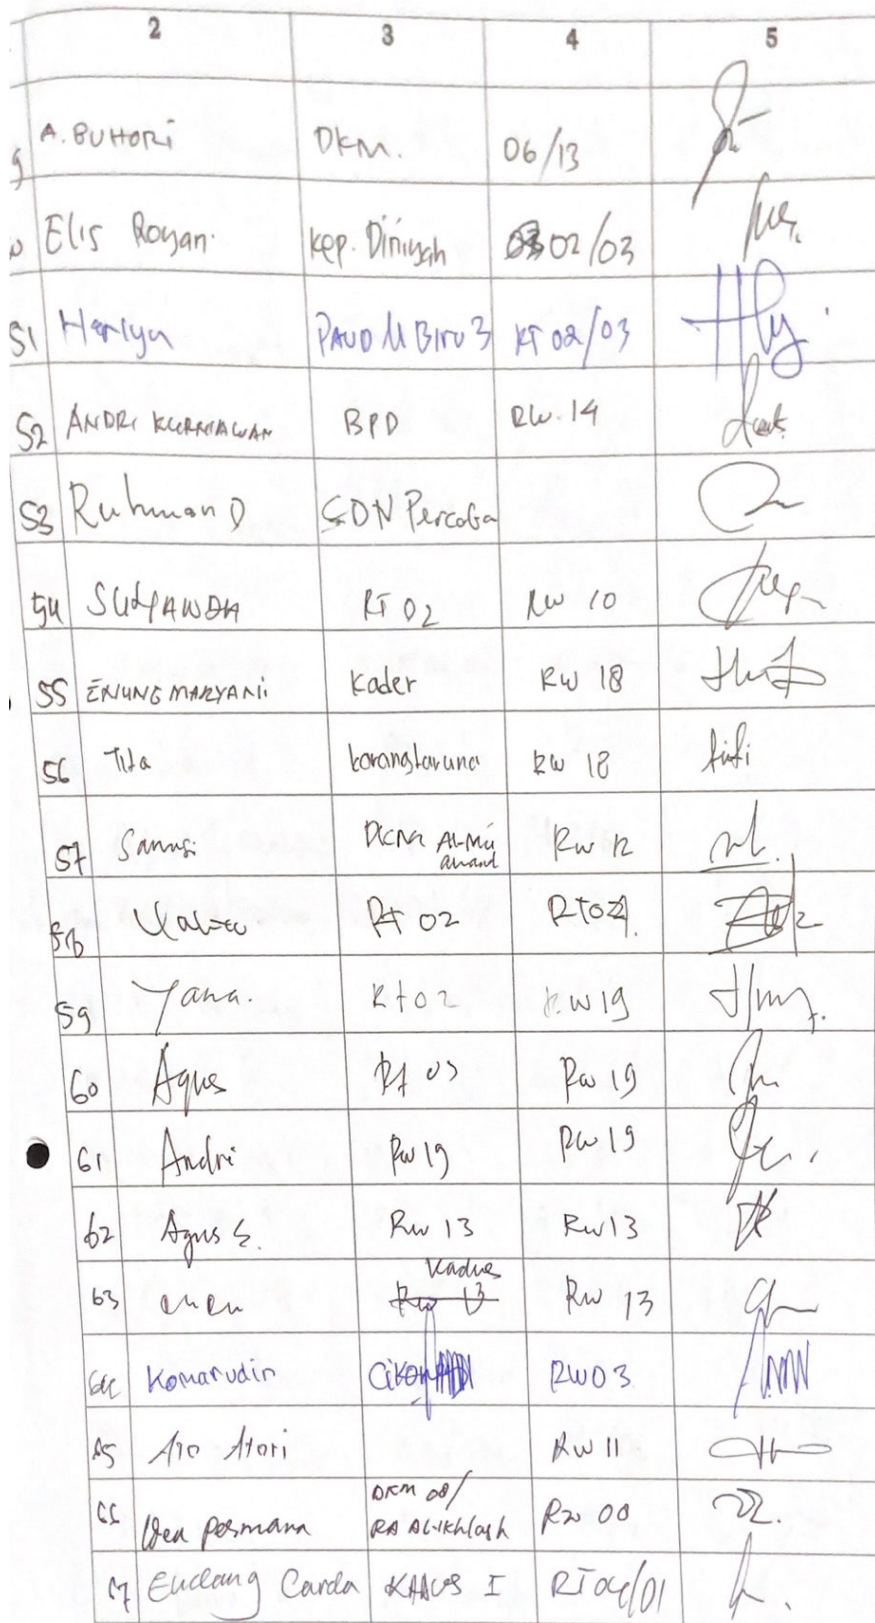 2 3 4 5
A. BUHORI DKM. 06/13
Elis Royan. Kep. Diniyah 02/03
51 Heriyn PAUD M BIRU 3 RT 02/03
52 ANDRI KURNIAWAN BPD RW. 14
53 Ruhman D SDN Percoba
54 RT 02 RW 10
55 ENUNG MARYANi Kader RW 18
56 Tita karangtaruna RW 18
57 Sanusi DKM Rw 12
RT 02
59 Yana. Rt 02 RW 19
60 Agus Rt 03 Rw 19
61 Andri Rw 19 Rw 19
62 Agus S. Rw 13 Rw 13
Kadus
63 Rw 13 Rw 13
64 Komarudin RW 03
65 RW 11
DKM 08/
66 Permana RA AL-Ikhlash RW 08
67 Endang Carda KADUS I RT 04/01